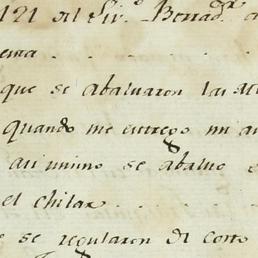 121 del Sir.º Borrad.or
ema
que se abaluaron las
quando me entrego mi
asi mimo se abaluo
el chilar
se regularon de corto